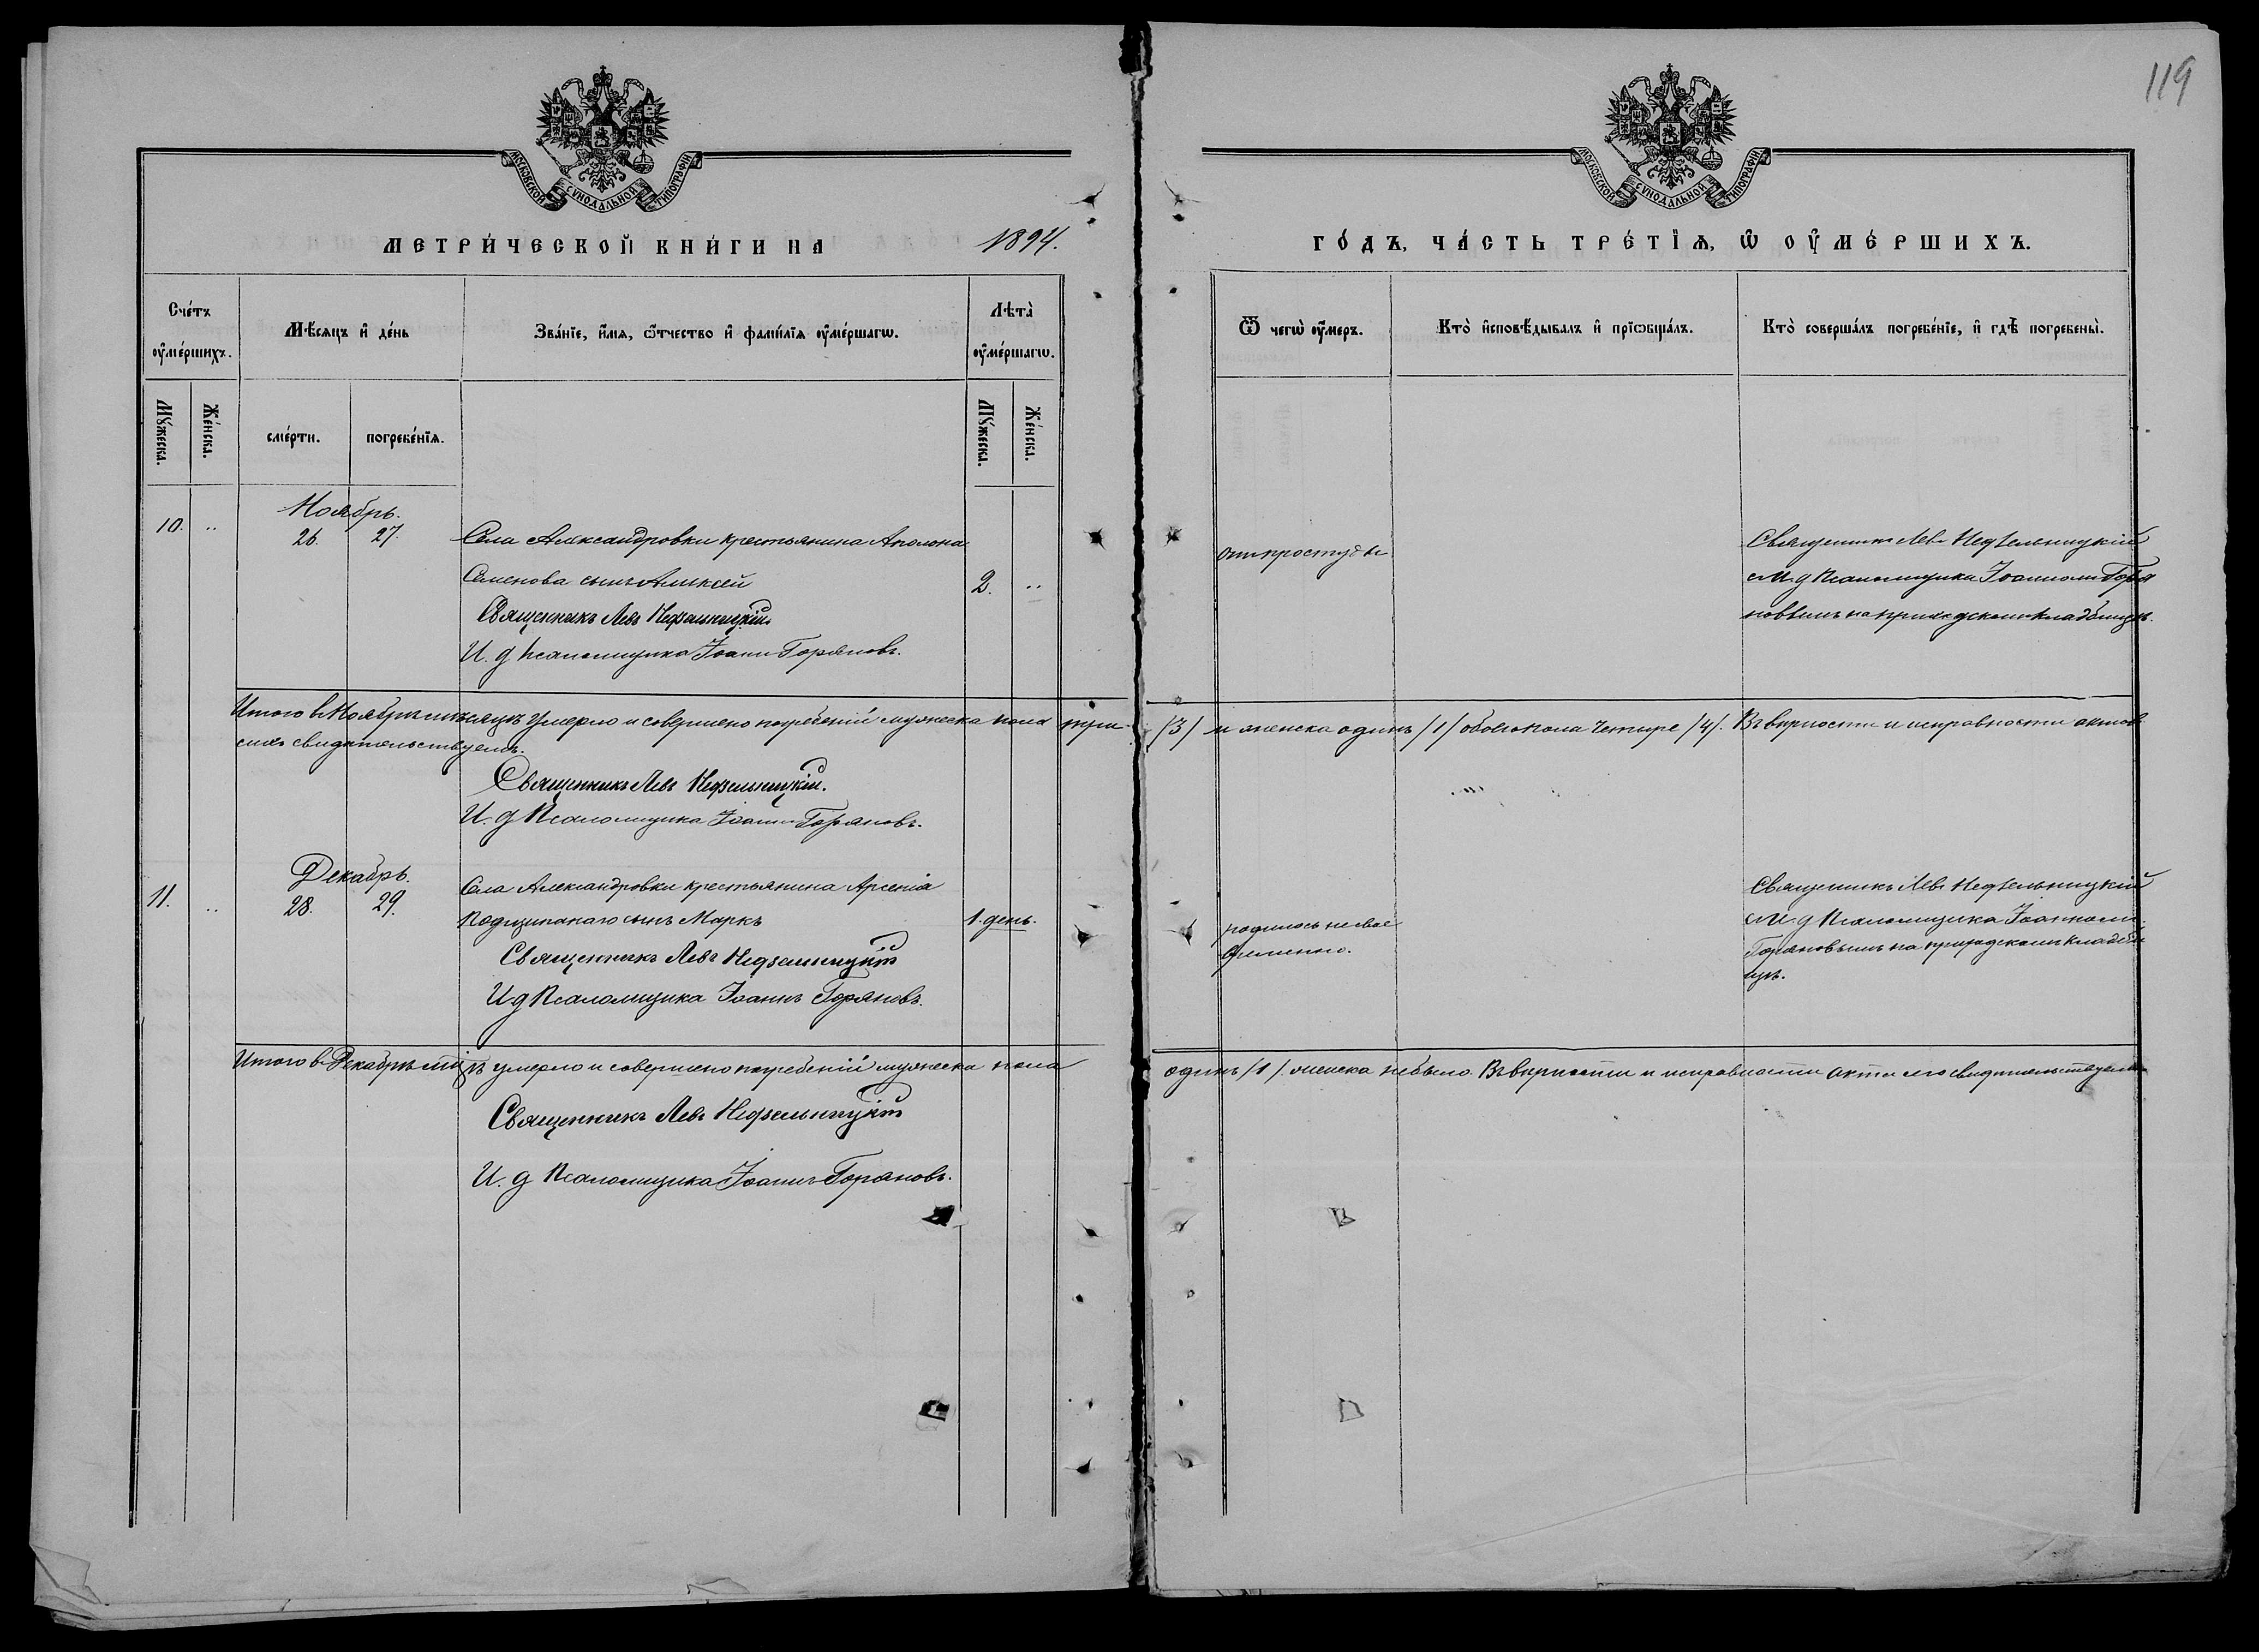 119
МОСКОВСКОЙ СѴНОДАЛЬНОЙ ТИПОГРАФІИ
МОСКОВСКОЙ СѴНОДАЛЬНОЙ ТИПОГРАФІИ
МЕТРИ́ЧЕСКОЙ КНИ́ГИ НА 1894.
ГО́ДЪ, ЧА́СТЬ ТРЕ́ТІѦ, Ѡ ОУМЕ́РШИХЪ.
Сче́тъ оуме́ршихъ.
Мѣ́сяцъ и де́нь
Зва́нїе, и́мѧ, ѻ҆́тчество и фами́лїѧ оуме́ршагѡ.
Лѣта̀ оуме́ршагѡ.
Ѿ чегѡ̀ оу́меръ.
Кто̀ и҆сповѣ́дывалъ и прїѡбща́лъ.
Кто̀ соверша́лъ погребе́нїе, и гдѣ̀ погребены̀.
Мꙋ́жеска.
Же́нска.
сме́рти.
погребе́нїѧ.
Мꙋ́жеска.
Же́нска.
Ноябрь.
10. .. 26. 27. Села Александровки крестьянина Аполона
Семенова сынъ Алексѣй 2. ..
Священникъ Левъ Недзельницкій
И. д Псаломщика Іоаннъ Горяновъ.
отъ простуды
Священникъ Левъ Недзельницкій
съ И. д Псаломщика Іоанномъ Горя
новымъ на приходскомъ кладбищѣ.
Итого в Ноябрѣ мѣсяцѣ умерло и совершено погребеній мужеска пола три /3/ и женска одинъ /1/ обоего пола четыре /4/. Въ вѣрности и исправности актовъ
сихъ свидѣтельствуемъ.
Священникъ Левъ Недзельницкій.
И. д Псаломщика Іоаннъ Горяновъ.
Декабрь.
11. .. 28. 29. Села Александровки крестьянина Арсенія
Подщипанаго сынъ Маркъ 1. день.
Священникъ Левъ Недзельницкій
И д Псаломщика Іоаннъ Горяновъ.
родилось несвое
временно.
Священникъ Левъ Недзельницкій
съ И. д Псаломщика Іоанномъ
Горяновымъ на приходскомъ кладби
щѣ.
Итого в Декабрѣ мцѣ умерло и совершено погребеній мужеска пола одинъ /1/. женска небыло. Въ вѣрности и исправности акта сего свидѣтельствуемъ
Священникъ Левъ Недзельницкій
И. д Псаломщика Іоаннъ Горяновъ.